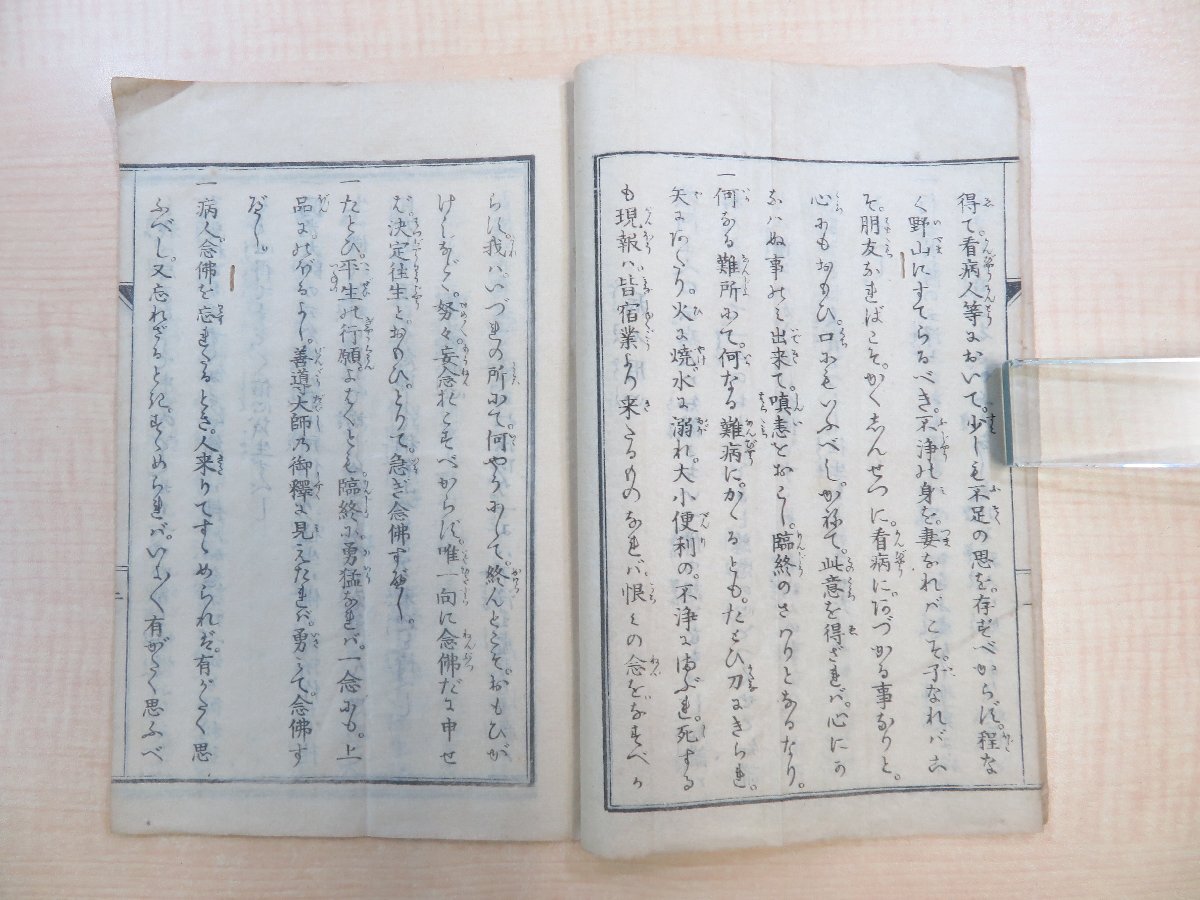 得て。看病人等において。少しも不足の思を。存ずべからず。程な
く野山にすてらるべき。不浄の身を。妻なればこそ。子なればこ
そ。朋友なればこそ。かくしんせつに。看病にあづかる事なりと。
心にもおもひ。口にもいふべし。かねて。此意を得ざれば。心にか
なはぬ事のミ出来て。嗔恚をおこし。臨終のさはりとなるなり。
一何なる難所にて。何なる難病に。かゝるとも。たとひ刀にきられ。
矢にあたり。火に焼。水に溺れ。大小便利の。不浄にまぶれ。死する
も。現報ハ。皆宿業より来るものなれば。恨ミの念を。なすべか
らず。我ハ。いづれの所にて。何やうにして。終んとこそ。おもひが
けしなど。努々妄念を。おこすべからず。唯一向に念佛だに申せ
ば。決定往生と。おもひ。とりて。急ぎ念佛すべし。
一たとひ。平生の行願。よはくとも。臨終に勇猛なれば。一念にも。上
品にのぼるよし。善導大師乃御釋に見えたれば。勇ミて念佛す
べし。
一病人念佛を忘れたるとき。人来りてすゝめられば。有がたく思
ふべし。又忘れざるとき。すゝめらればいよ〳〵有がたく思ふべ